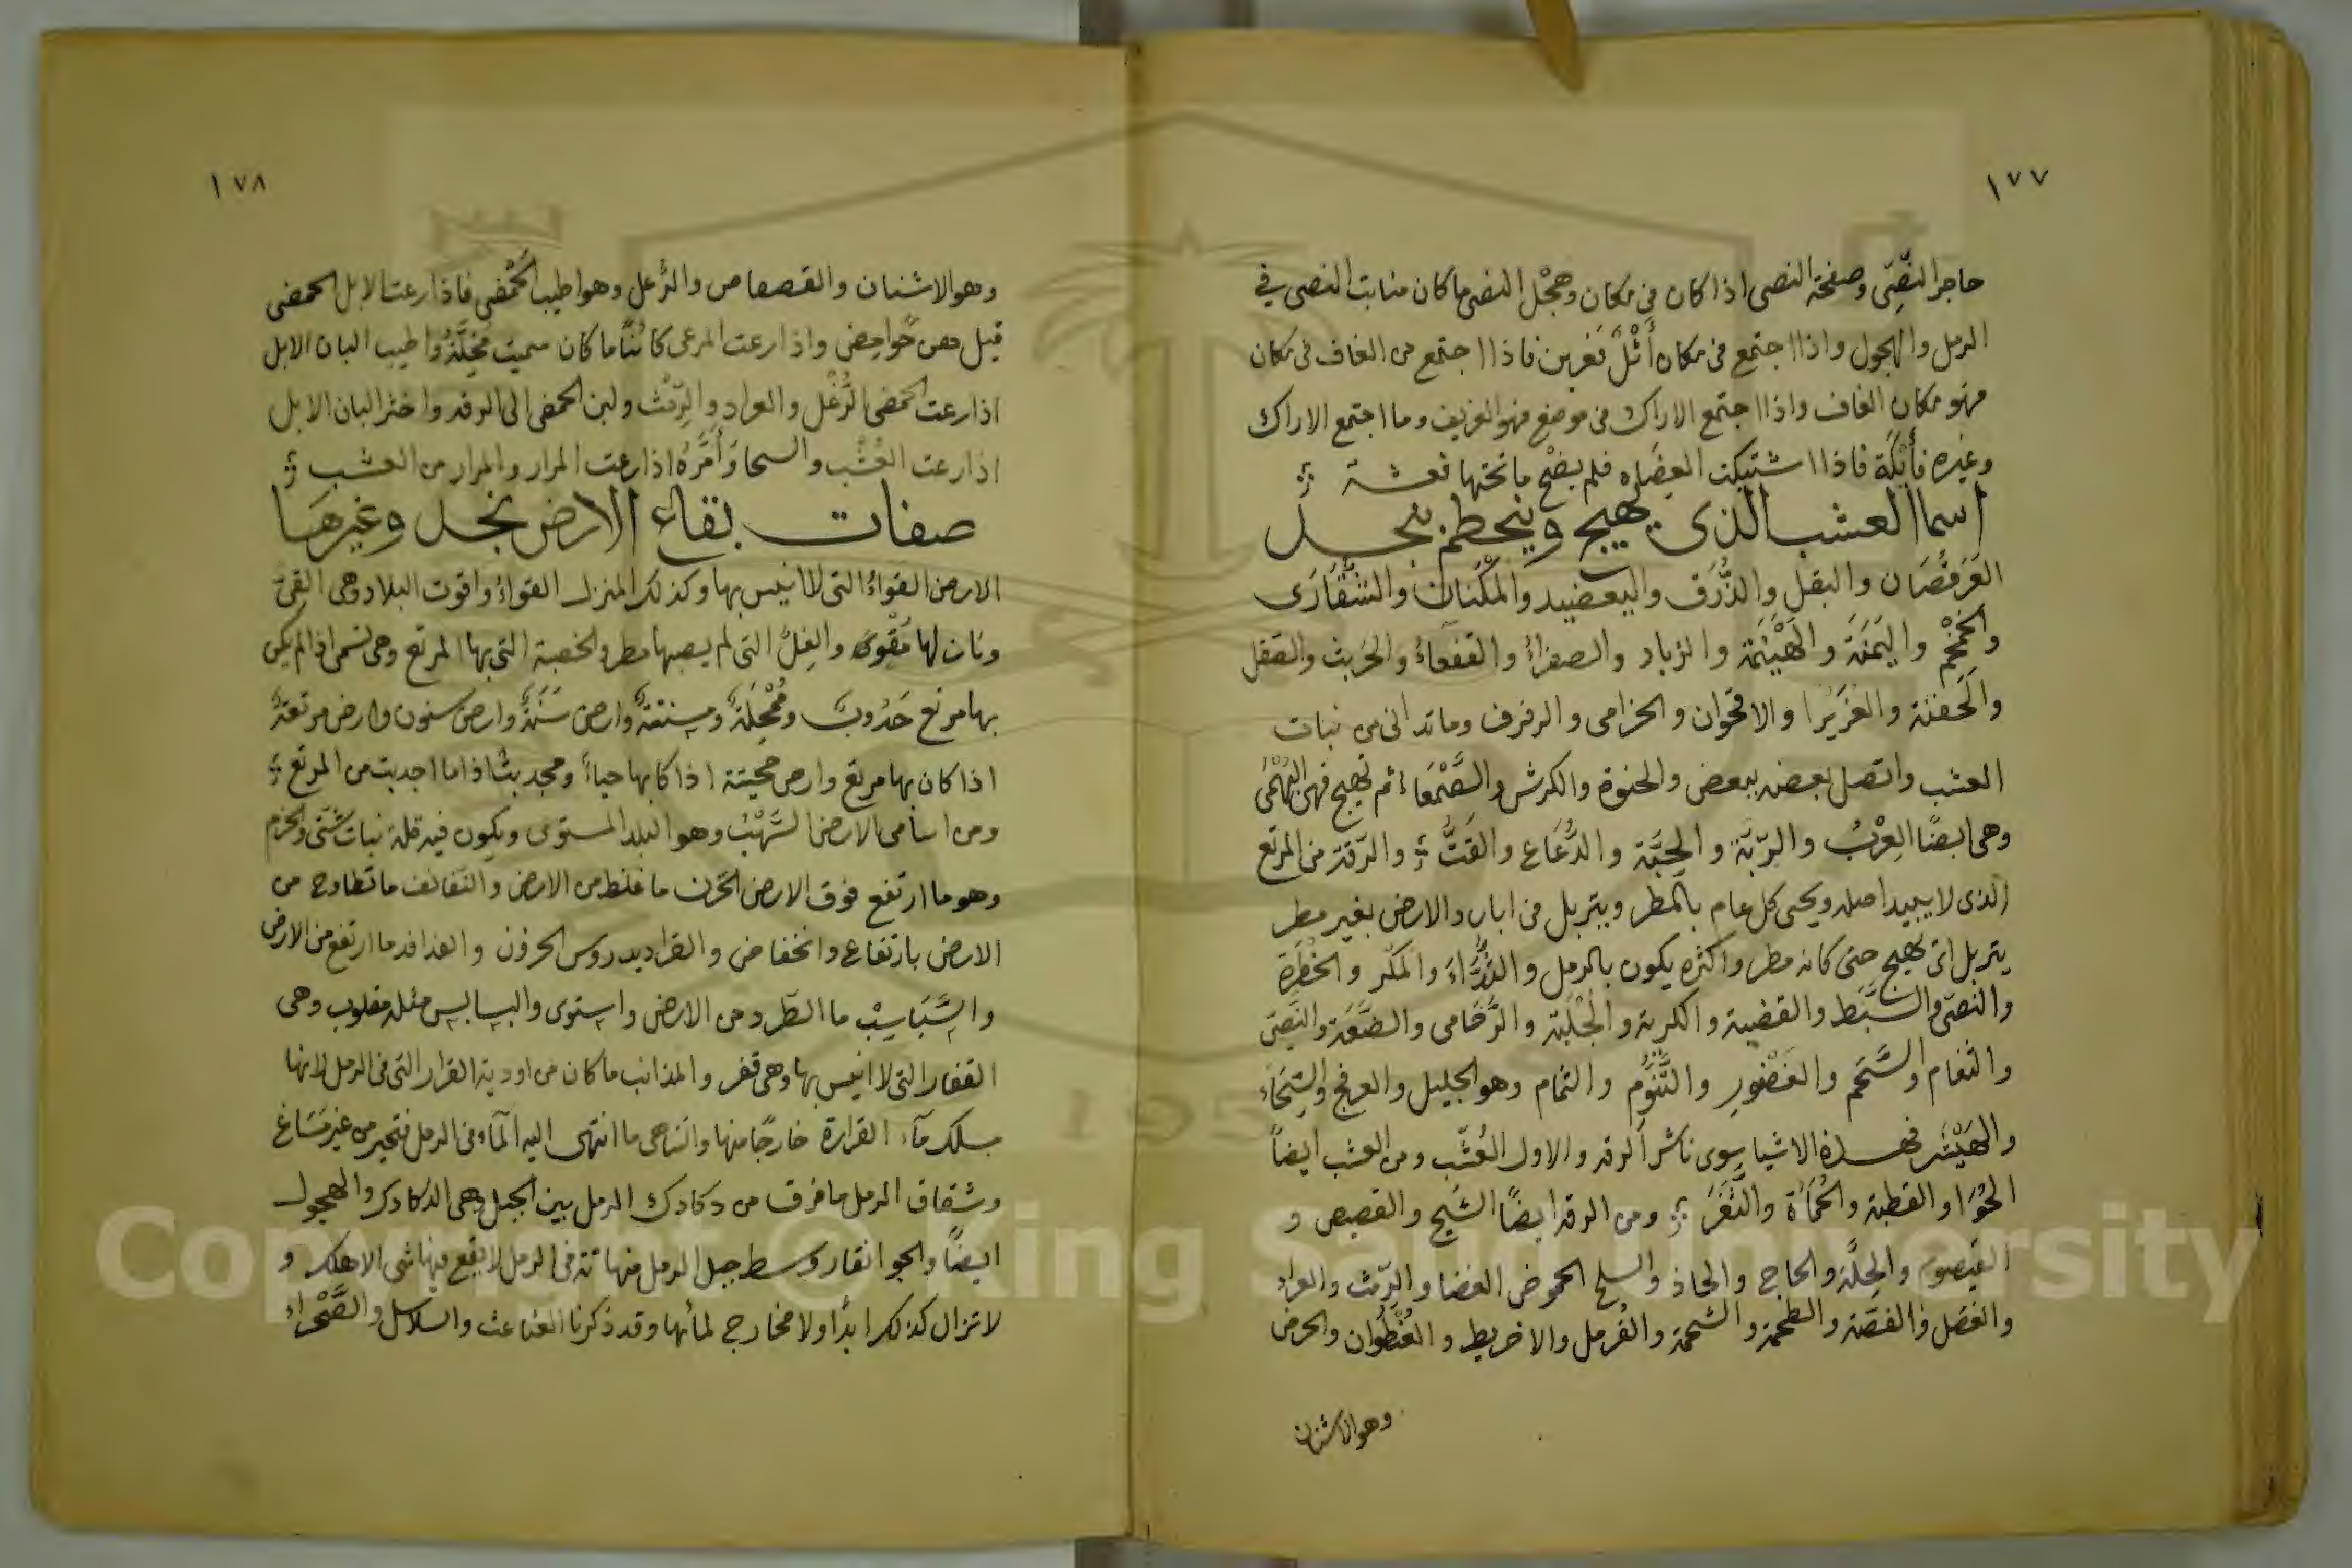 ١٧٧
حاجر النَّصِّى وصفحة النصى اذا كان فى مكان وهجْل النصى ما كان منابت النصى فى
الرمل والهجول واذا اجتمع فى مكان أَثْلٌ فعرين فاذا اجتمع من الغاف فى مكان
فهو مكان الغاف واذا اجتمع الاراك فى موضع فهو الغريف وما اجتمع الاراك
وغيره فأَيْكَة فاذا اشتبكت العِضَاه فلم يضْح ما تحتها فعشة
اسما العشب الذى يهيج وينحطم بنجد
العَرَقُصَان والبقل والذُّرَق واليعضيد والمَكْنَان والشُّقَّارَى
والخِمْخِم واليَمَنَة والهَيْثَمَة والزباد والصفراءُ والقفعاءُ والحَرَبث والقفل
والحَفنة والغُرَيْرا والاقحوان والخزامى والرفرف وما تدانى من نبات
العشب واتصل بعضه ببعض والحنوة والكرش والصَّمْعَاءُ ثم تهيج فهى البُهْمَى
وهى ايضًا العِرْبُ والرَّبَّة والحِبَّة والدُّعَاع والقَتُّ والرقة من المرتع
الذى لا يبيد اصله ويحيى كل عام بالمطر ويتربل من ابارد الارض بغير مطر
يتربل اى يهيج حتى كانه مطر واكثره يكون بالرمل والذُّرَّاءَ والمَكْر والخَطْرَة
والنصّى والسَّبَط والقضبة والكربة والجُلَّبة والرُّخَامى والضَّعَة والنصى
والثغام والسَّحَم والغَضْوَر والتَّنُّوم والثمام وهو الجليل والعرفج والسِّحَاء
والهَيْشَر فهذه الاشيا سوى ناشر الرقة والاول العُشْب ومن العشب ايضاً
الحُوَّا والقطبة والحُمَاة والثَّغَر ومن الرقه ايضًا الشيح والقصيص و
القيصوم والحِلَّة والحاج والحاذ والسلح الحموض الغضا والرِّمث والعراد
والقصل والقضّة والطحمة والشحمة والقُرمل والاخريط والعُنْظُوان والحرض
وهو الاشنان
١٧٨
وهو الاشنان والقصقاص والرُّغل وهو اطيب الحَمْض فاذا رعت الابل الحمض
قيل هن حَوامِض واذا رعت المرعى كائنًا ما كان سميت مُخِلَّة واطيب البان الابل
اذا رعت الحمض الرُّغْل والعراد والرِّمْث ولبن الحمض الى الرقة واخثر البان الابل
اذا رعت العُشْب والسحا وَأَمَرُّه اذا رعت المرار والمرار من العشب
صفات بقاع الارض بنجد وغيرها
الارض القواءُ التى لا انيس بها وكذلك المنزل القواءُ واقوت البلاد وهى القىّ
ونان لها مُقْوِىَة والفِلُّ التى لم يصبها مطر والخصبة التى بها المرتع وهى تسمى اذا لم يكن
بها مرتع حَدُوبٌ ومُمْحِلَةٌ ومسنتة وارض سَنَةٌ وارض سنون وارض مرتعةٌ
اذا كان بها مرتع وارض محيية اذا كا بها حياءً ومجدبة اذا ما اجدبت من المرتع
ومن اسامى الارض السَّهْبُ وهو البلد المستوى ويكون فيه قلة نبات شتى والحزم
وهو ما ارتفع فوق الارض الحَزن ما غلظ من الارض والنفانف ما تطاوح من
الارض بارتفاع وانخفاض والقراديد روس الحروف والفدافد ما ارتفع من الارض
والسَّبَاسِبْ ما اطَّرد من الارض واستوى والبسابس مثله مقلوب وهى
القفار التى لا انيس بها وهى قفر والمذانب ما كان من اودية القرار التى فى الرمل لانها
يسلك مآء القرارة خارجًا منها والتناهى ما انتهى اليه المآء فى الرمل فتحير من غير مَسَاغ
وشقاق الرمل ما فرق من دكادك الرمل بين الحبل وهى الدكادك والهجول
ايضًا والجو انقار وسط حبل الرمل منهاتة فى الرمل لا يقع فيها شى الا هلك و
لا تزال كذلك ابدًا ولا مخارج لمائها وقد ذكرنا العثاعث والسلاسل والصَّحْراءُ